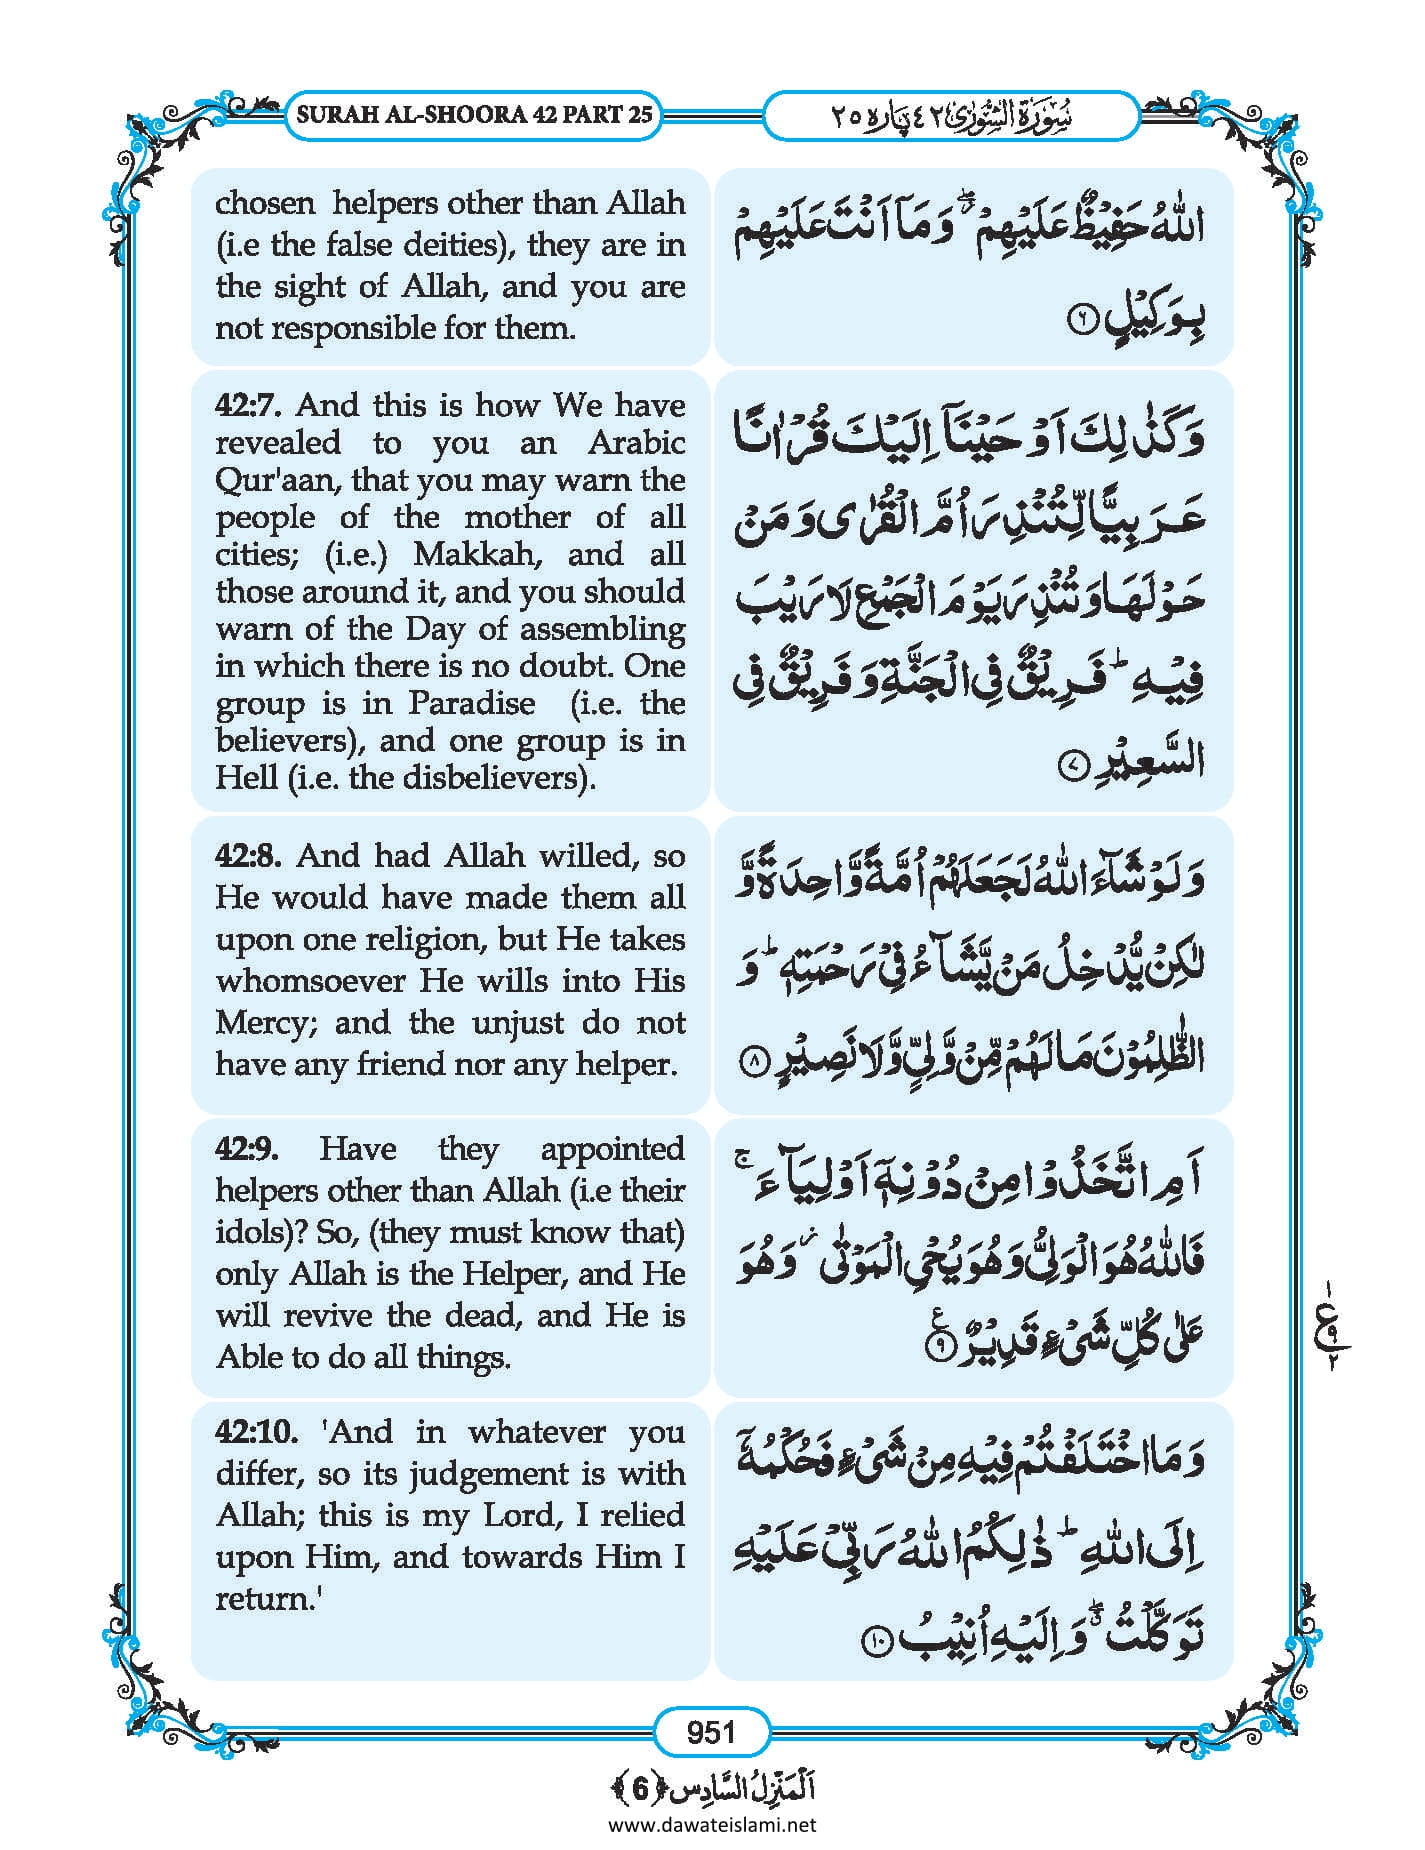 SURAH AL-SHOORA 42 PART 25
سُوْرَةُ الشُّوْرٰى ٤٢ پَارہ ٢٥
chosen helpers other than Allah
(i.e the false deities), they are in
the sight of Allah, and you are
not responsible for them.
اللّٰهُ حَفِیْظٌ عَلَیْهِمْ ۖ٘ وَ مَاۤ اَنْتَ عَلَیْهِمْ
بِوَكِیْلٍ ۝۶
42:7. And this is how We have
revealed to you an Arabic
Qur'aan, that you may warn the
people of the mother of all
cities; (i.e.) Makkah, and all
those around it, and you should
warn of the Day of assembling
in which there is no doubt. One
group is in Paradise (i.e. the
believers), and one group is in
Hell (i.e. the disbelievers).
وَ كَذٰلِكَ اَوْحَیْنَاۤ اِلَیْكَ قُرْاٰنًا
عَرَبِیًّا لِّتُنْذِرَ اُمَّ الْقُرٰى وَ مَنْ
حَوْلَهَا وَ تُنْذِرَ یَوْمَ الْجَمْعِ لَا رَیْبَ
فِیْهِ ؕ فَرِیْقٌ فِی الْجَنَّةِ وَ فَرِیْقٌ فِی
السَّعِیْرِ ۝۷
42:8. And had Allah willed, so
He would have made them all
upon one religion, but He takes
whomsoever He wills into His
Mercy; and the unjust do not
have any friend nor any helper.
وَ لَوْ شَآءَ اللّٰهُ لَجَعَلَهُمْ اُمَّةً وَّاحِدَةً وَّ
لٰكِنْ یُّدْخِلُ مَنْ یَّشَآءُ فِیْ رَحْمَتِهٖ ؕ وَ
الظّٰلِمُوْنَ مَا لَهُمْ مِّنْ وَّلِیٍّ وَّ لَا نَصِیْرٍ ۝۸
42:9. Have they appointed
helpers other than Allah (i.e their
idols)? So, (they must know that)
only Allah is the Helper, and He
will revive the dead, and He is
Able to do all things.
اَمِ اتَّخَذُوْا مِنْ دُوْنِهٖۤ اَوْلِیَآءَ ۚ
فَاللّٰهُ هُوَ الْوَلِیُّ وَ هُوَ یُحْیِ الْمَوْتٰى ؗ وَ هُوَ
عَلٰى كُلِّ شَیْءٍ قَدِیْرٌ ۝۹ ع
۱
ع۹
۲
42:10. 'And in whatever you
differ, so its judgement is with
Allah; this is my Lord, I relied
upon Him, and towards Him I
return.'
وَ مَا اخْتَلَفْتُمْ فِیْهِ مِنْ شَیْءٍ فَحُكْمُهٗۤ
اِلَى اللّٰهِ ؕ ذٰلِكُمُ اللّٰهُ رَبِّیْ عَلَیْهِ
تَوَكَّلْتُ ۖۗ وَ اِلَیْهِ اُنِیْبُ ۝۱۰
951
اَلْمَنْزِلُ السَّادِس ﴿6﴾
www.dawateislami.net